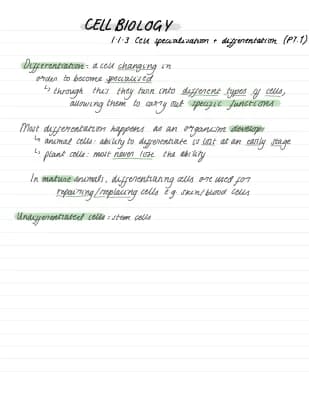 CELL BIOLOGY
1.1.3 Cell specialisation + differentiation (PT.1)
Differentiation: a cell changing in
order to become specialised
↳ through this they turn into different types of cells,
allowing them to carry out specific functions
Most differentiation happens as an organism develops
↳ animal cells: ability to differentiate is lost at an early stage
↳ plant cells: most never lose the ability
In mature animals, differentiating cells are used for
repairing/replacing cells e.g. skin/blood cells
Undifferentiated cells = stem cells